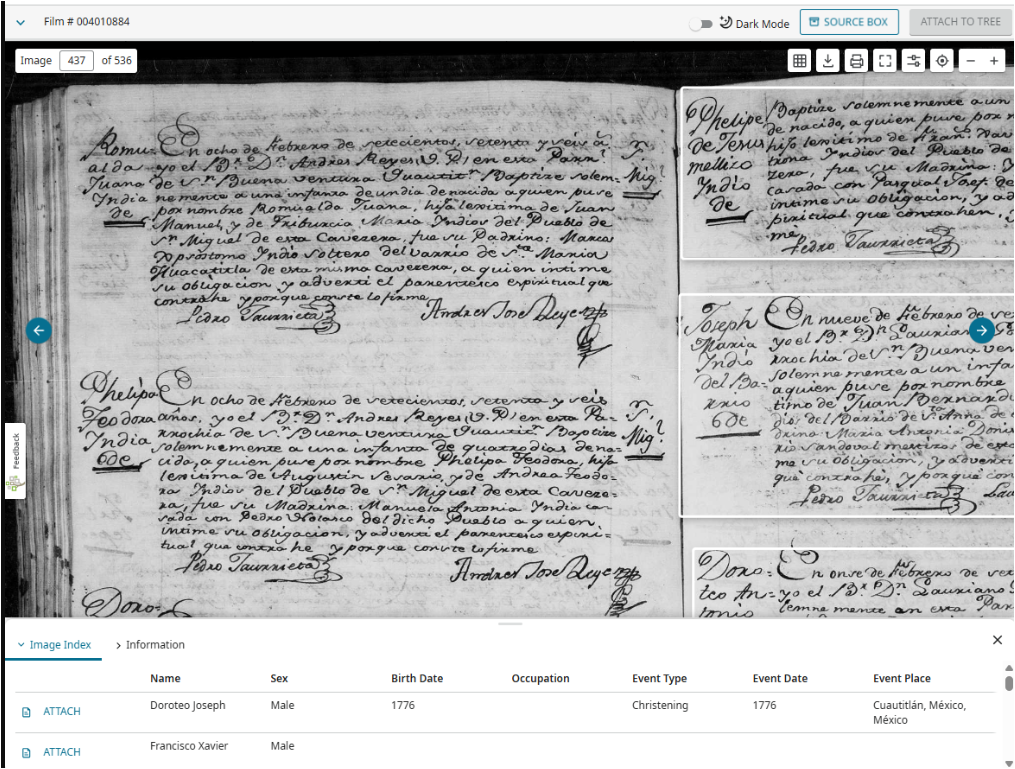 Film # 004010884
Dark Mode
SOURCE BOX
ATTACH TO TREE
Image 437 of 536
Romu-
alda
Juana
India
de
En ocho de Febrero de setecientos, setenta y seis a
yo el Br. Dn. Andres Reyes (V. P.) en esta Parra
de Sn. Buena ventura Quautitn. Baptize solem-
nemente a una infanta de un dia de nacida a quien puse
por nombre Romualda Juana, hija lexitima de Juan
Manuel, y de Triburcia Maria Yndios del Pueblo de
Sn. Miguel de esta Cavezera, fue su Padrino: Marco
Indio soltero del varrio de Sta. Maria
Huacatitla de esta misma Cavezera, a quien intime
su obligacion y adverti el parentesco espiritual que
contrahe y porque conste lo firme
Pedro Taurrieta
Andres Jose Reyes
Sn.
Mig.
Phelipa
Teodora
India
6 de
En ocho de Febrero de setecientos, setenta y seis
años, yo el Br. Dn. Andres Reyes (V. P.) en esta Pa-
rrochia de Sn. Buena ventura Quautitn. Baptize
solemnemente a una infanta de quatro dias de na-
cida, a quien puse por nombre Phelipa Teodora, hija
lexitima de Augustin Sesario, y de Andrea Teodo-
ra Yndios del Pueblo de Sn. Miguel de esta Caveze-
ra, fue su Madrina: Manuela Antonia Yndia ca-
sada con Pedro Nolasco del dicho Pueblo a quien,
intime su obligacion, y adverti el parentesco espiri-
tual que contrahe y porque conste lo firme
Pedro Taurrieta
Andres Jose Reyes
Sn.
Mig.
Doro-
Phelipe
de Jesus
mellico
Yndio
de
Baptize solemnemente a un
de nacido, a quien puse por n
hijo lexitimo de
trona Yndios del Pueblo de
zera, fue su Madrina:
casada con Pasqual Josef de
intime su obligacion, y ad
piritual que contrahen, y
me,
Pedro Taurrieta
Joseph
Maria
Yndio
del Ba-
rrio
6 de
En nueve de Febrero de se
yo el Br. Dn. Laurian
rrochia de Sn. Buena ven
solemnemente a un infa
a quien puse por nombre
timo de Juan Bernard
dio, del Barrio de Sta. Anna de
drina Maria Antonia
rio Sandoval mestizos de este
me su obligacion, y adverti
que contrahe, y porque con
Pedro Taurrieta
Doro-
teo An-
tonio
En onse de Febrero de se
yo el Br. Dn. Lauriano
lemne mente en esta Par
Feedback
Image Index
Information
Name Sex Birth Date Occupation Event Type Event Date Event Place
ATTACH Doroteo Joseph Male 1776 Christening 1776 Cuautitlán, México,
México
ATTACH Francisco Xavier Male